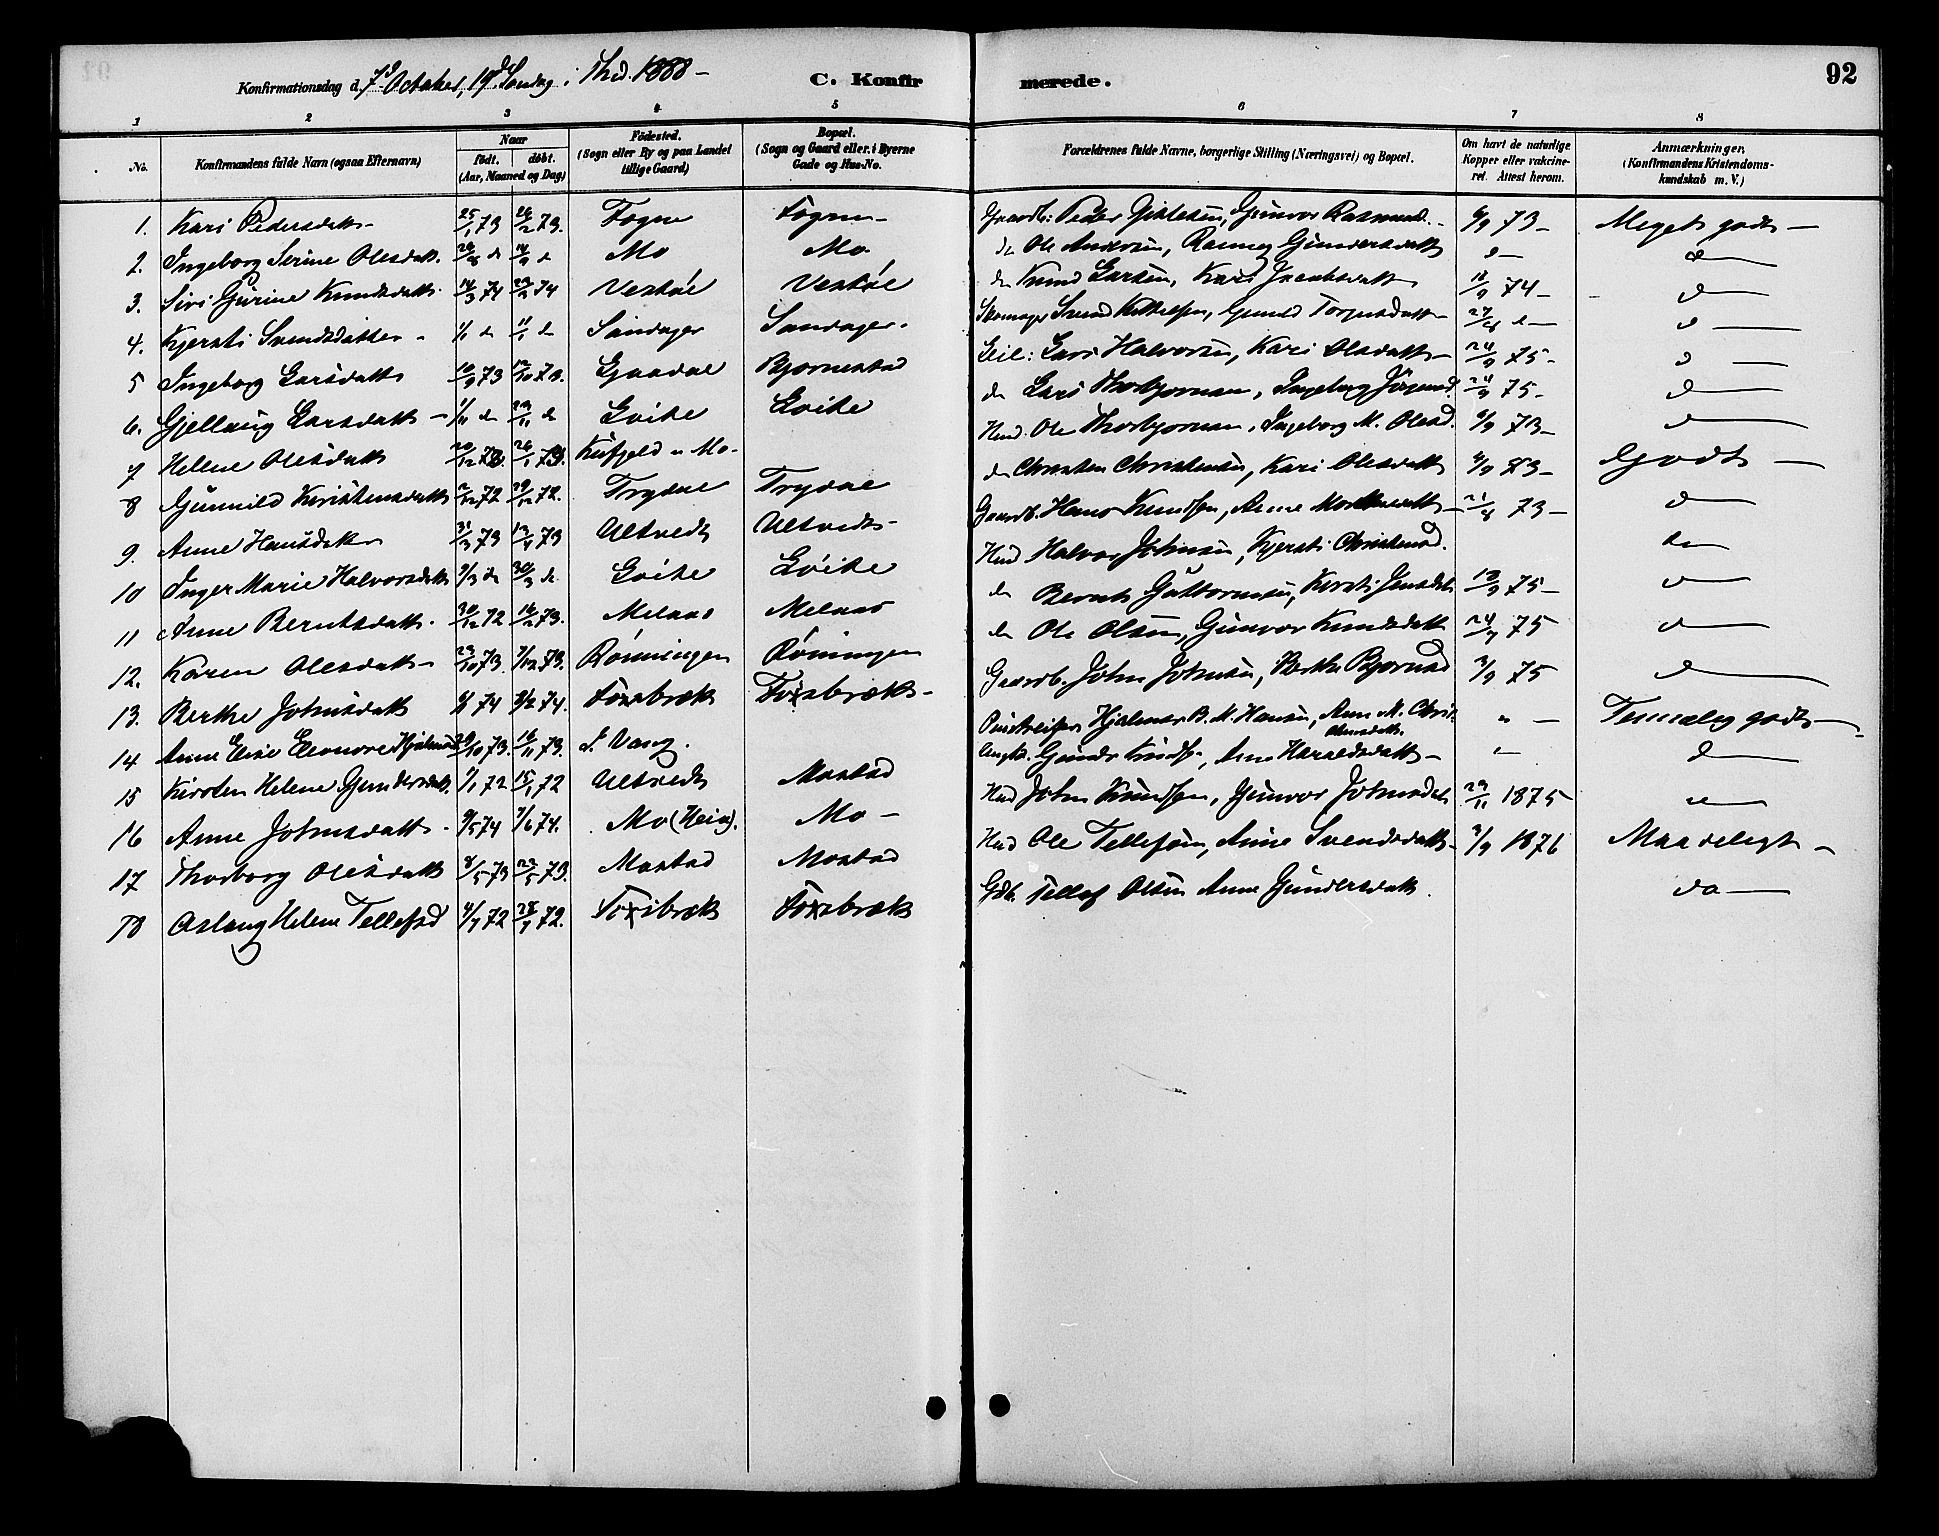 92
Konfirmationsdag d. 7d October, 19de Søndag i Thd. 1888 –
C. Konfirmerede.
1 2 3 4 5 6 7 8
No. Konfirmandens fulde Navn (ogsaa Efternavn) Naar født. døbt. (Aar, Maaned og Dag) Födested. (Sogn eller By og paa Landet tillige Gaard) Bopæl. (Sogn og Gaard eller i Byerne Gade og Hus-No. Forældrenes fulde Navne, borgerlige Stilling (Næringsvei) og Bopæl. Om havt de naturlige Kopper eller vakcineret. Attest herom. Anmærkninger, (Konfirmandens Kristendomskundskab m. V.)
1. Kari Pedersdatt 25/1 73 16/2 73. Fogne Fogne – Gaardb: Peder Gjulesen, Gunvor Rasmusd. 6/9 73 – Meget godt –
2. Ingeborg Serine Olesdatt. d d Mo Mo do Ole Andersen, Ragne Gundersdatt d – d –
3. Siri Gurine Knudsdatt. 14/3 74 74 Vestøl Vestøl do Knud Larsen, Kari Jacobsdatt 74 – d –
4. Kjersti Svendsdatter – 1/1 d 11/1 d Sandager Sandager. Skomager Svend Kittelsen, Gunild Torgusdatt – d – d –
5 Ingeborg Larsdatt 10/9 73 12/10 73. Gjaadal Bjornestad Leil: Lars Halvorsen, Kari Olsdatt – 24/9 75 – d –
6. Gjellaug Larsdatt – 1/11 d 23/11 d Lvike Lvike do Lars Thorbjornsen, Ingeborg Jörgensd. 24/9 75 – d –
7 Helene Olesdatt 20/12 72 26/1 73. Kufjeld u Mo. Hmd. Ole Thorbjornsen, Ingeborg M. Olesd. 6/9 73 – d –
8 Gunnild Kristensdatt 2/12 72 29/12 72. Trydal Trydal do Christen Christensen, Kari Olesdatt 6/9 83 – Godt –
9. Anne Hansdatt 31/3 73 13/4 73 Ulstvedt Ulstvedt – Gaardb. Hans Knudsen, Anne 21/8 73 – d –
10 Inger Marie Halvorsdatt 9/3 d 30/3 d Lvike Lvike Hmd Halvor Johnsen, Kjersti Christensd. do
11 Anne Berntsdatt. 30/12 72 16/2 73. Melaas Melaas do Bernt Guttormsen, Kersti Jensdatt 13/9 75 – d –
12. Karen Olesdatt – 23/10 73. 7/12 73. Rönningen Röningen do Ole Olsen, Gunvor Knudsdatt 24/9 75 d –
13. Berthe Johnsdatt 74 8/2 74. Foxebræk Foxebræk – Gaardb. John Johnsen, Berthe Bjornsd 3/9 75 d –
14 Anne Elise Eleonore Hjalmersd 20/10 73. 16/11 73. S. Vang. Hjalmer B. M. Hansen, Anne M. Christensdatt " – Temmelig godt –
15 Kirsten Helene Gundersdatt. 7/1 72 15/1 72 Ulstvedt Mostad Gunder Knuds, Anne Haraldsdatt – " – d –
16 Anne Johnsdatt – 9/5 74 7/6 74. Mo (Heia). Mo – Hmd John Knudsen, Gunvor Johnsdatt 29/11 1875 –
17 Thorborg Olesdatt 8/5 73 25/5 73. Mostad Mostad Hmd Ole Tellefsen, Anne Svendsdatt – 3/9 1876 Maadeligt –
18 Aslaug Helene Tellefsd 4/7 72 28/7 72. Foxebræk Foxebræk Gdb. Tellef Olsen Anne Gundersdatt. do –